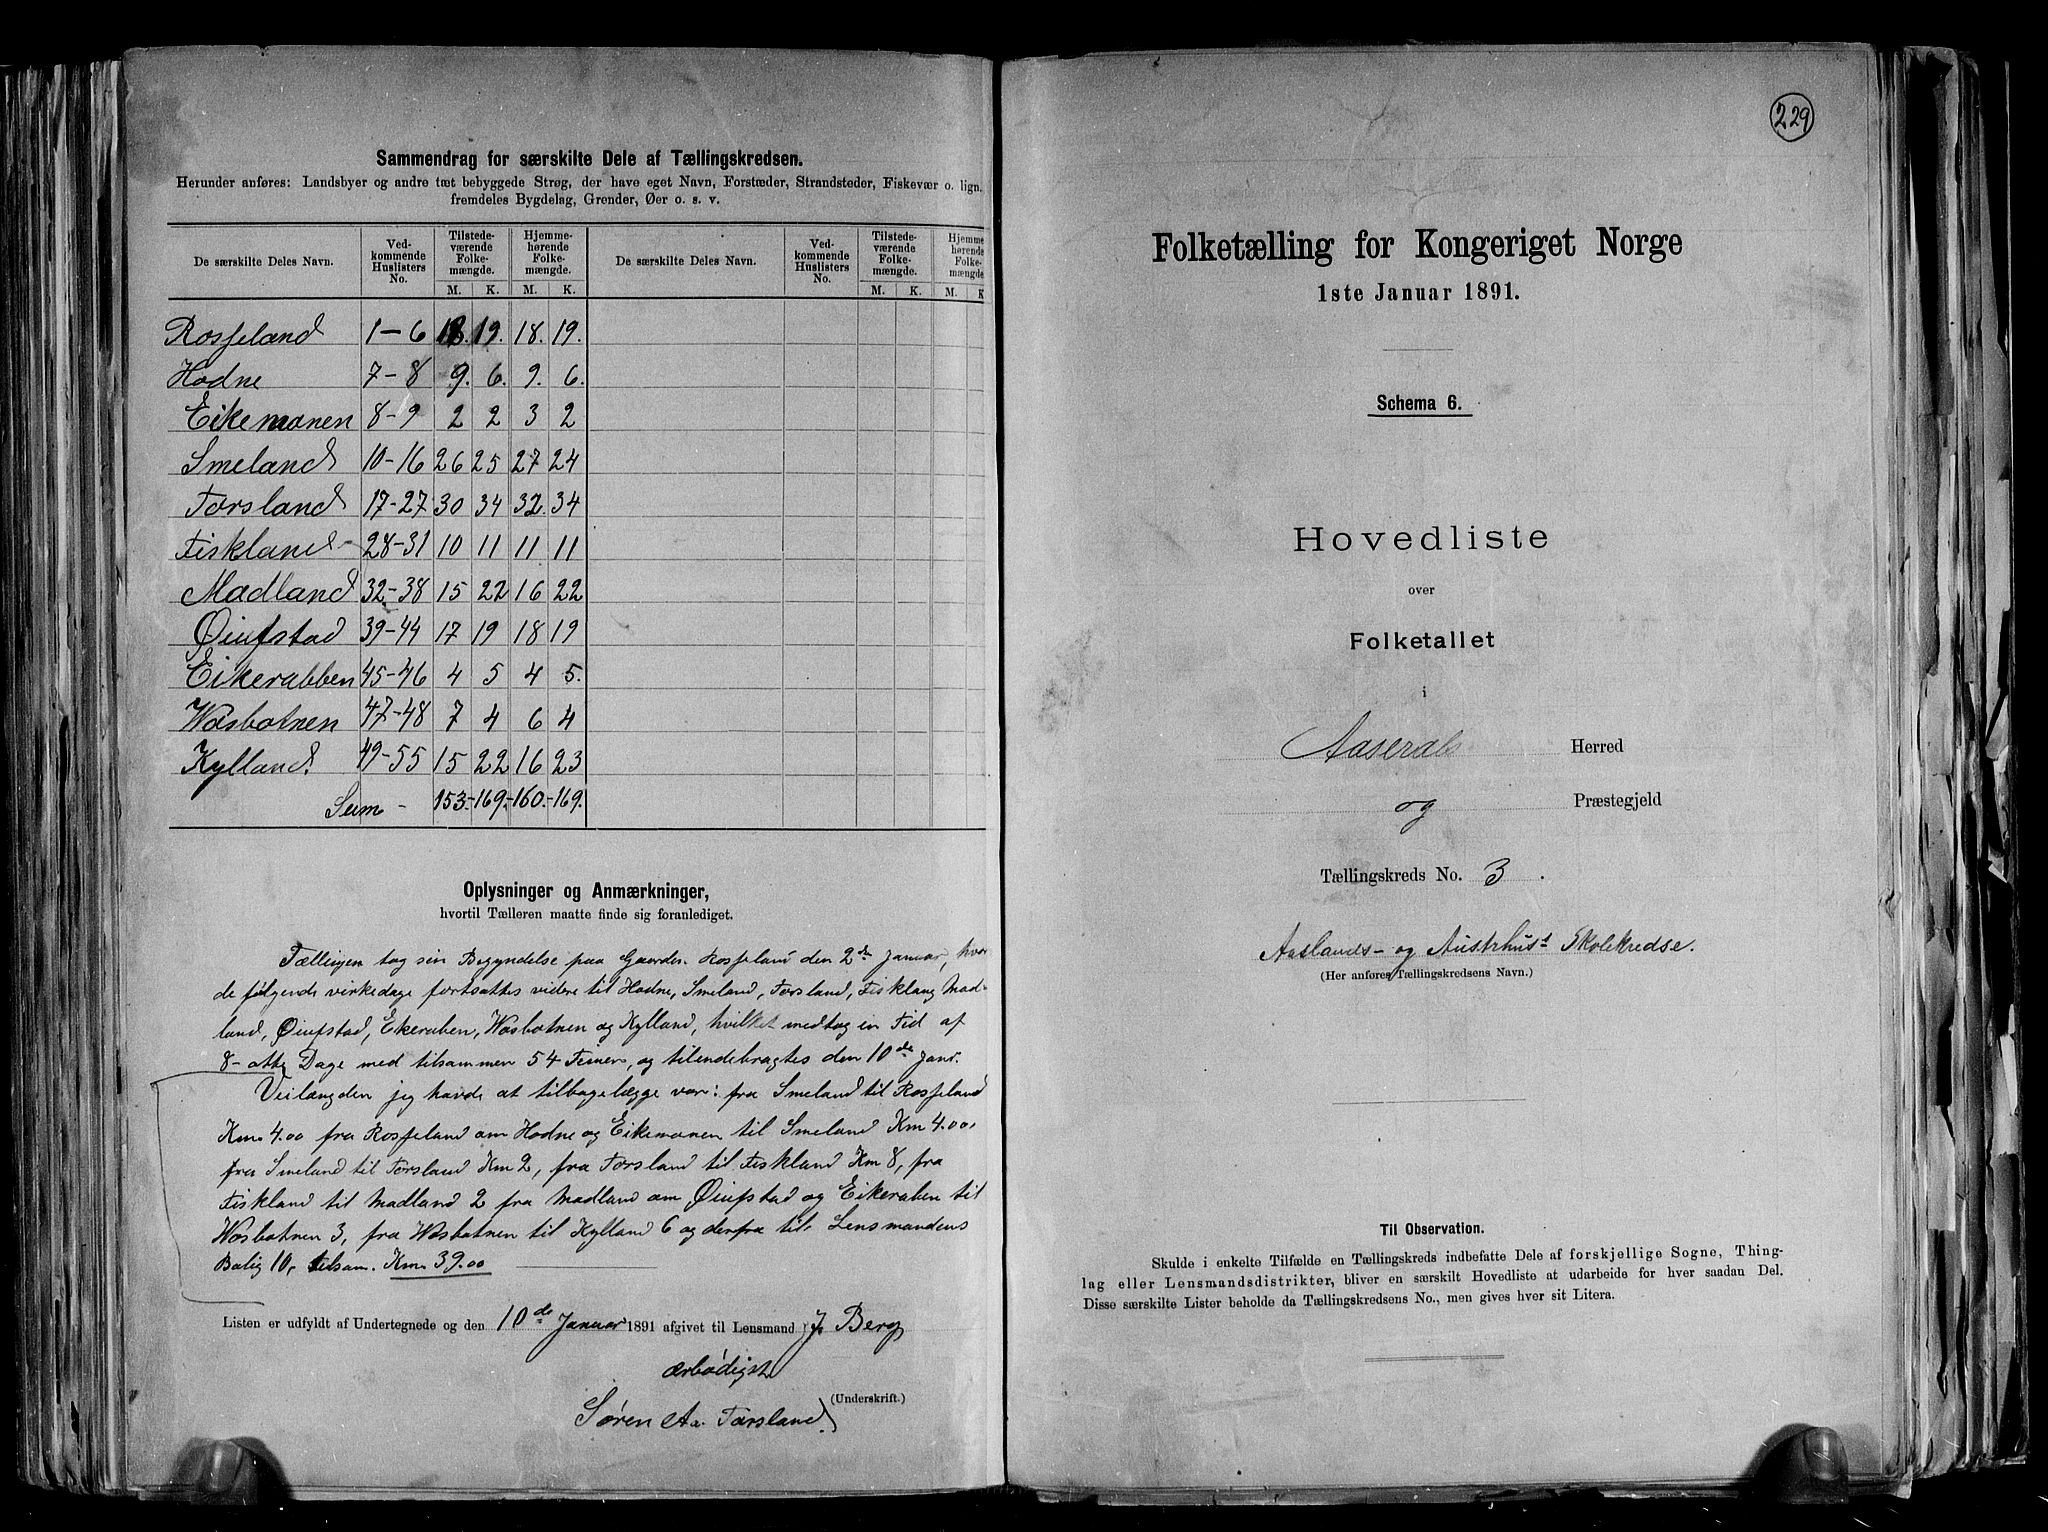 Sammendrag for særskilte Dele af Tællingskredsen.
Herunder anføres: Landsbyer og andre tæt bebyggede Strøg, der have eget Navn, Forstæder, Strandsteder, Fiskevær o. lign.
fremdeles Bygdelag, Grender, Øer o. s. v.
De særskilte Deles Navn. Ved-kommende Huslisters No. Tilstede-værende Folke-mængde. Hjemme-hørende Folke-mængde. De særskilte Deles Navn. Ved-kommende Huslisters No. Tilstede-værende Folke-mængde. Hjemme-hørende Folke-mængde
M. K. M. K. M. K. M. K
Rosseland 1-6 18. 19. 18. 19.
Hodne 7-8 9. 6. 9. 6.
Eikemonen 8-9 2 2 3 2
Smeland 10-16 26 25 27 24
Torsland 17-27 30 34 32. 34
Fiskland 28-31 10 11 11 11
Madland 32-38 15 22 16 22
Øiufstad 39-44 17 19 18 19
Eikerabben 45-46 4 5 4 5.
Wosbotnen 47-48 7 4 6 4
Kylland. 49-55 15 22 16 23
Sum - 153.-169.-160.-169.
Oplysninger og Anmærkninger,
hvortil Tælleren maatte finde sig foranlediget.
Tællingen tog sin Begyndelse paa Gaarden Rosseland den 2de Januar, hvor
de følgende virkedage fortsattes videre til Hodne, Smeland, Torsland, Fiskland, Mad-
land, Øiufstad, Eikeraben, Wosbotnen og Kylland, hvilket medtog en Tid af
8-otte Dage med tilsammen 54 Timer, og tilendebragtes den 10de Janr.
Veilængden jeg havde at tilbagelægge var: fra Smeland til Rosseland
Km. 4.00 fra Rosseland om Hodne og Eikemonen til Smeland Km 4.00,
fra Smeland til Torsland Km 2, fra Torsland til Fiskland Km 8, fra
Fiskland til Madland 2 fra Madland om Øiufstad og Eikeraben til
Wosbotnen 3, fra Wosbotnen til Kylland 6 og derfra til Lensmandens
Bolig 10, tilsam. Km. 39.00
Listen er udfyldt af Undertegnede og den 10de Januar 1891 afgivet til Lensmand J. Berg
ærbødigst
(Underskrift.)
Søren Aa. Torsland.
229
Folketælling for Kongeriget Norge
1ste Januar 1891.
Schema 6.
Hovedliste
over
Folketallet
i
Aaserals Herred
og Præstegjeld
Tællingskreds No. 3.
Aaslands- og Austrhus's Skolekredse.
(Her anføres Tællingskredsens Navn.)
Til Observation.
Skulde i enkelte Tilfælde en Tællingskreds indbefatte Dele af forskjellige Sogne, Thing-
lag eller Lensmandsdistrikter, bliver en særskilt Hovedliste at udarbeide for hver saadan Del.
Disse særskilte Lister beholde da Tællingskredsens No., men gives hver sit Litera.